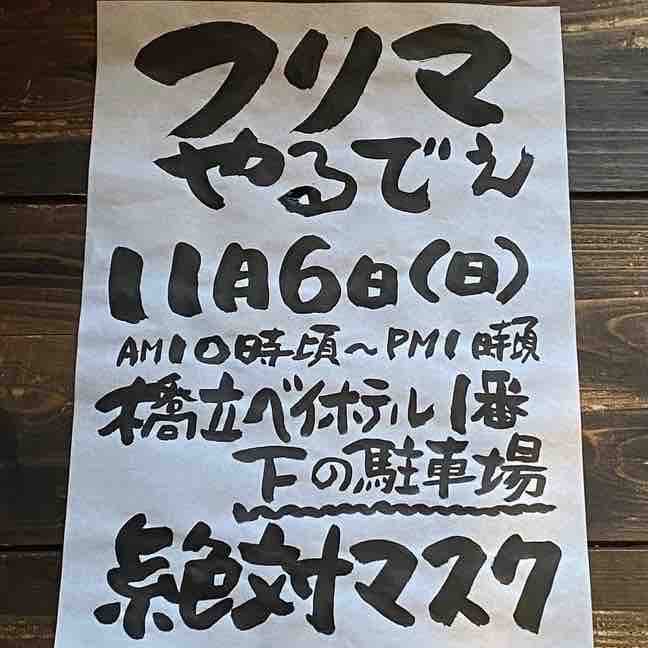 フリマ
やるでぇ
11月6日(日)
AM10時頃～PM1時頃
橋立ベイホテル1番
下の駐車場
絶対マスク